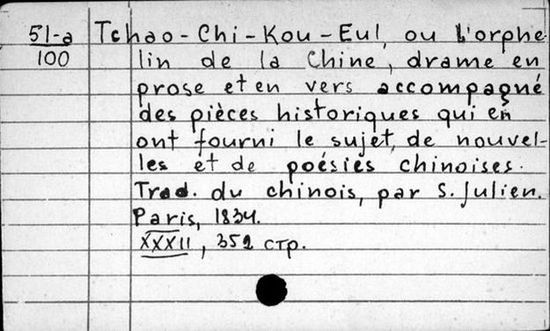 51-a Tchao-Chi-Kou-Eul, ou l'orphe
100 lin de la Chine, drame en
prose et en vers accompagné
des pièces historiques qui en
ont fourni le sujet, de nouvel-
les et de poésies chinoises.
Trad. du chinois, par S. Julien.
Paris, 1834.
XXXII, 352 стр.